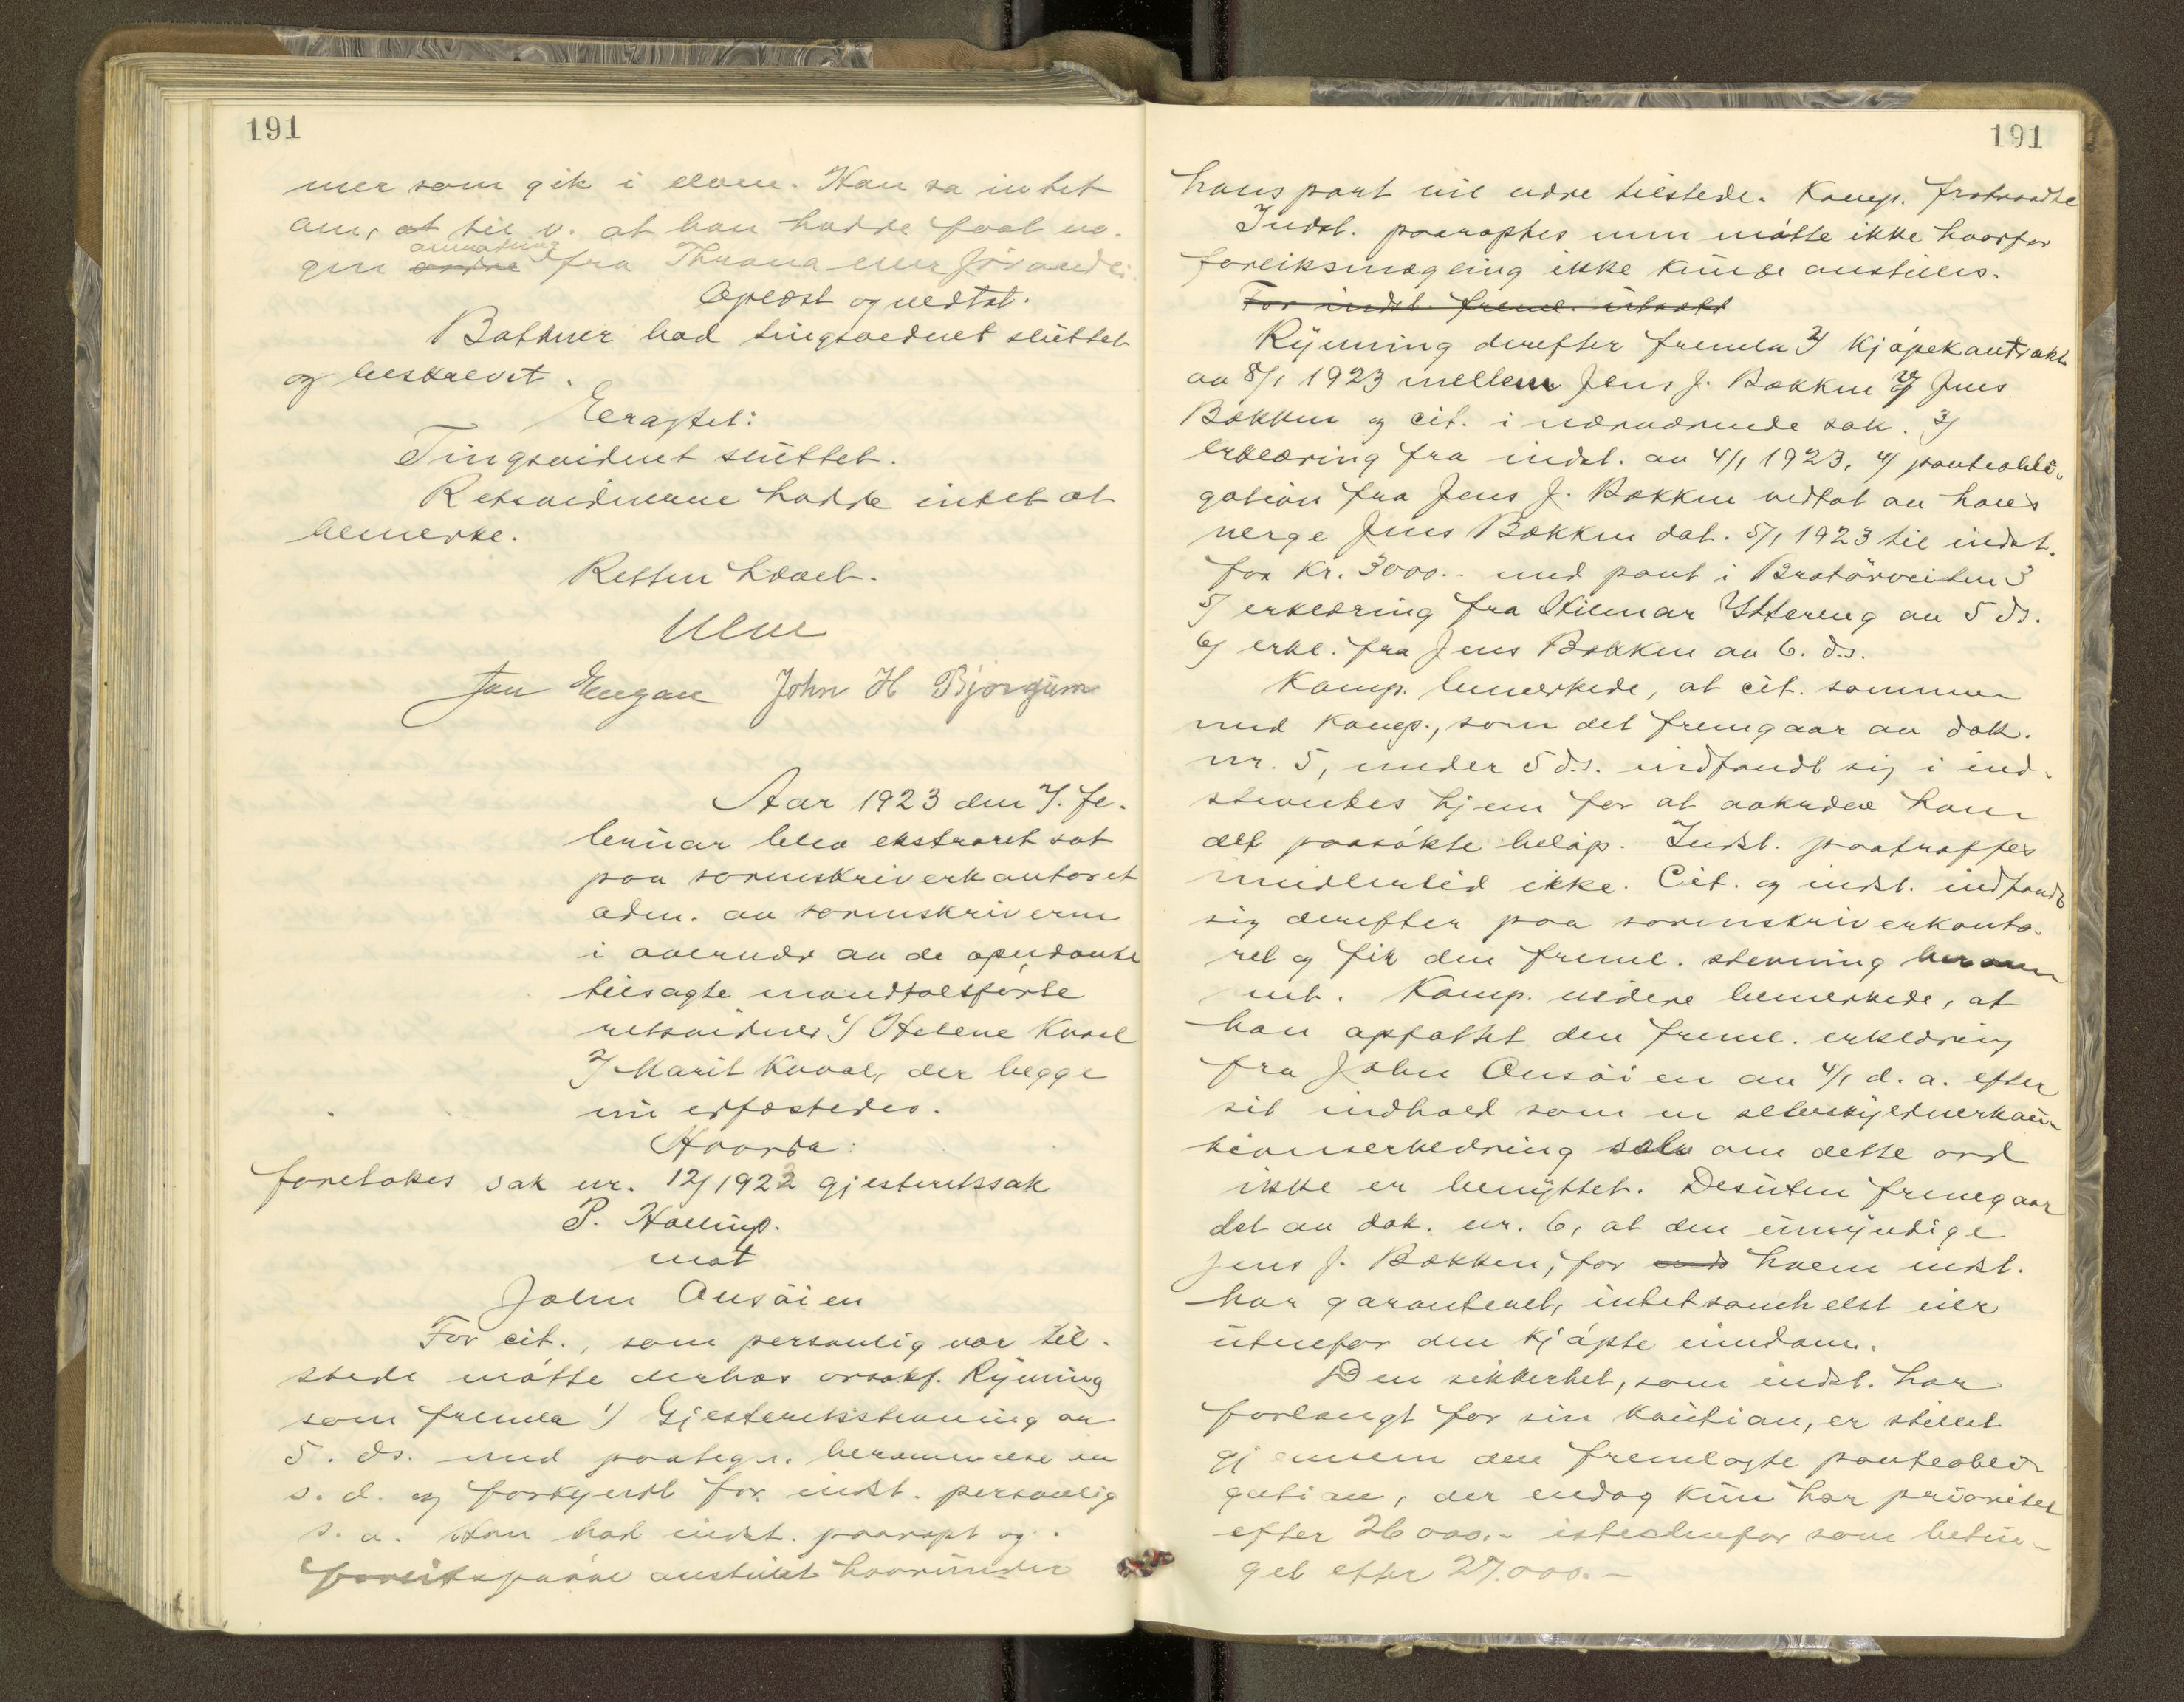 191
mer som gik i elven. Han sa intet
om, at til v. at han hadde faat no-
anmodning
gen ordre fra Thuana eller Jörandli.
Oplæst og vedtat.
Bakkner bad tingsvidnet sluttet
og beskrevet.
Eragtet:
Tingsvidnet sluttet.
Retsvidnene hadde intet at
bemerke.
Retten hævet.
Ulve
Jon Engan John H Bjørgum
Aar 1923 den 7. fe-
bruar blev ekstraret sat
paa sorenskriverkontoret
adm. av sorenskriveren
i overvær av de opnævnte
tilsagte mandtalsförte
retsvidner 1/ Helene Kvaal
2/ Marit Kvaal, der begge
nu edfæstedes.
Hvorda:
foretokes sak nr. 12/1922 gjesteretssak
P. Hallup.
mot
John Ousöien
For cit., som personlig var til-
stede mötte derhos orsakf. Ryjening
som fremla 1) Gjesteretsstevning av
5. ds. med paategn. berammelse av
s. d. og forkyndt for indst. personlig
s. d. Han bad indst. paaropt og
forliksprøve anstillet hvorunder
191
hans part vil være tilstede. Komp. fratraadte
Indst. paaroptes men mötte ikke hvorfor
forliksmægling ikke kunde anstilles.
For indst. freml. utsatt
Ryjening derefter fremla 2) Kjöpekontrakt
av 8/1 1923 mellem Jens J. Bakken og Jens
Bakken og cit. i nærværende sak. 3/
erklæring fra indst. av 4/1 1923, 4/ panteobli-
gation fra Jens J. Bakken vedtat av hans
verge Jens Bakken dat. 5/1 1923 til indst.
for kr. 3000.- med pant i Bratörveiten 3
5/ erklæring fra Hilmar Yttereng av 5 ds.
6/ erkl. fra Jens Bakken av 6. ds.
Komp. bemerkede, at cit. sammen
med komp., som det fremgaar av dok.
nr. 5, under 5 ds. indfandt sig i ind-
stevntes hjem for at avkræve ham
det paasökte belöp. Indst. paatraffes
imidlertid ikke. Cit. og indst. indfandt
sig derefter paa sorenskriverkonto-
ret og fik den freml. stevning beram
met. Komp. videre bemerkede, at
han opfattet den freml. erklæring
fra John Ousöien av 4/1 d. a. efter
sit indhold som en selvskyldnerkau-
tionserklæring selv om dette ord
ikke er benyttet. Desuten fremgaar
det av dok. nr. 6, at den umyndige
Jens J. Bakken, for hvem indst.
har garanteret, intetsomhelst eier
utenfor den kjöpte eiendom.
Den sikkerhet, som indst. har
forlangt for sin kaution, er stillet
gjennem den fremlagte panteobli-
gation, der endog kun har prioritet
efter 26000.- istedenfor som betin-
get efter 27.000.-